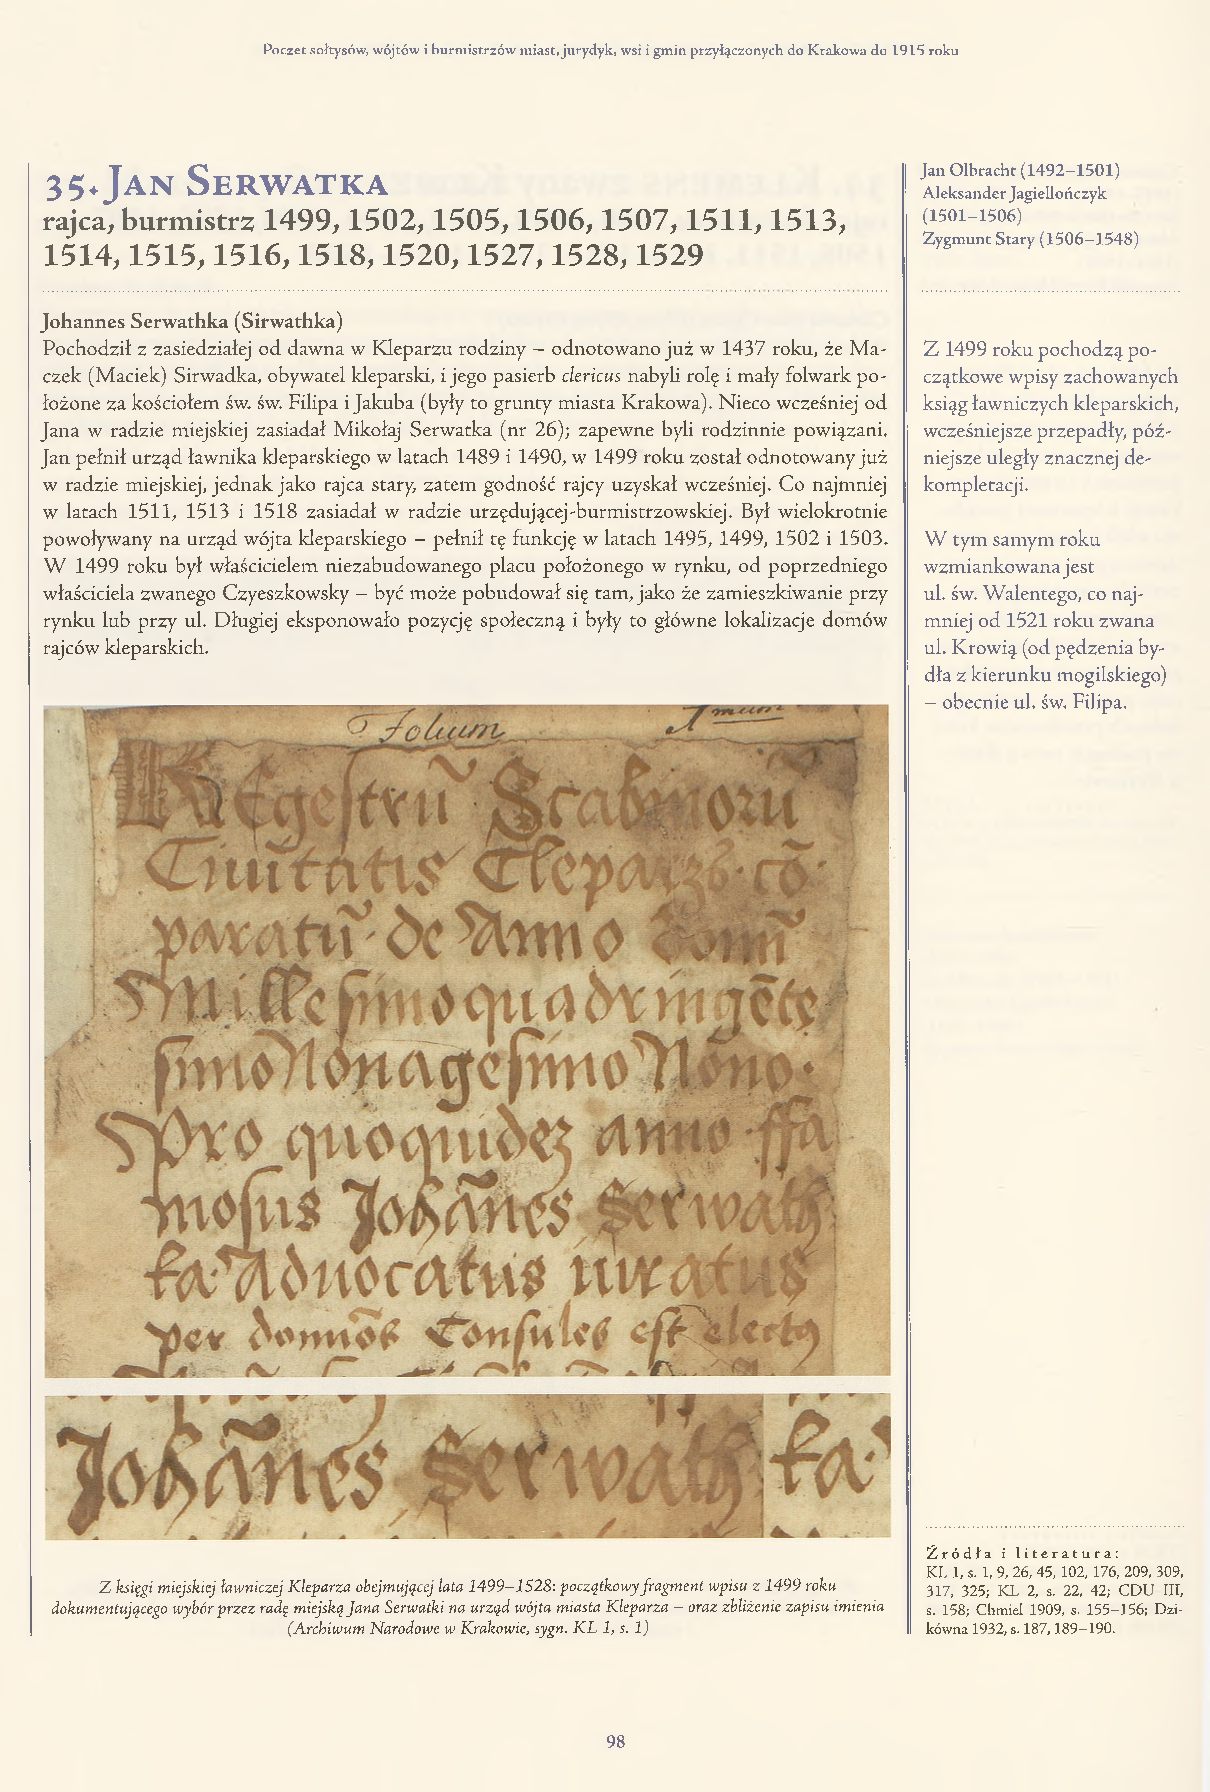 Poczet sołtysów, wójtów i burmistrzów miast, jurydyk, wsi i gmin przyłączonych do Krakowa do 1915 roku
35. Jan Serwatka
rajca, burmistrz 1499, 1502, 1505, 1506, 1507, 1511, 1513,
1514, 1515, 1516, 1518, 1520, 1527, 1528, 1529
Johannes Serwathka (Sirwathka)
Pochodził z zasiedziałej od dawna w Kleparzu rodziny – odnotowano już w 1437 roku, że Ma-
czek (Maciek) Sirwadka, obywatel kleparski, i jego pasierb clericus nabyli rolę i mały folwark po-
łożone za kościołem św. św. Filipa i Jakuba (były to grunty miasta Krakowa). Nieco wcześniej od
Jana w radzie miejskiej zasiadał Mikołaj Serwatka (nr 26); zapewne byli rodzinnie powiązani.
Jan pełnił urząd ławnika kleparskiego w latach 1489 i 1490, w 1499 roku został odnotowany już
w radzie miejskiej, jednak jako rajca stary, zatem godność rajcy uzyskał wcześniej. Co najmniej
w latach 1511, 1513 i 1518 zasiadał w radzie urzędującej-burmistrzowskiej. Był wielokrotnie
powoływany na urząd wójta kleparskiego – pełnił tę funkcję w latach 1495, 1499, 1502 i 1503.
W 1499 roku był właścicielem niezabudowanego placu położonego w rynku, od poprzedniego
właściciela zwanego Czyeszkowsky – być może pobudował się tam, jako że zamieszkiwanie przy
rynku lub przy ul. Długiej eksponowało pozycję społeczną i były to główne lokalizacje domów
rajców kleparskich.
Folium
REgestrū Scabinorū
Ciuitatis Clepar cō
paratū de Anno domī
Millesimo quadringēte
simo Nonagesimo Nono
Pro quoquidez anno ffa
mosus Johānes Serwath
ka Aduocatus iuratus
per domīos Consules est electus
Johānes Serwath ka
Z księgi miejskiej ławniczej Kleparza obejmującej lata 1499–1528: początkowy fragment wpisu z 1499 roku
dokumentującego wybór przez radę miejską Jana Serwatki na urząd wójta miasta Kleparza – oraz zbliżenie zapisu imienia
(Archiwum Narodowe w Krakowie, sygn. KL 1, s. 1)
Jan Olbracht (1492–1501)
Aleksander Jagiellończyk
(1501–1506)
Zygmunt Stary (1506–1548)
Z 1499 roku pochodzą po-
czątkowe wpisy zachowanych
ksiąg ławniczych kleparskich,
wcześniejsze przepadły, póź-
niejsze uległy znacznej de-
kompletacji.
W tym samym roku
wzmiankowana jest
ul. św. Walentego, co naj-
mniej od 1521 roku zwana
ul. Krowią (od pędzenia by-
dła z kierunku mogilskiego)
– obecnie ul. św. Filipa.
Źródła i literatura:
KL 1, s. 1, 9, 26, 45, 102, 176, 209, 309,
317, 325; KL 2, s. 22, 42; CDU III,
s. 158; Chmiel 1909, s. 155–156; Dzi-
kówna 1932, s. 187, 189–190.
98